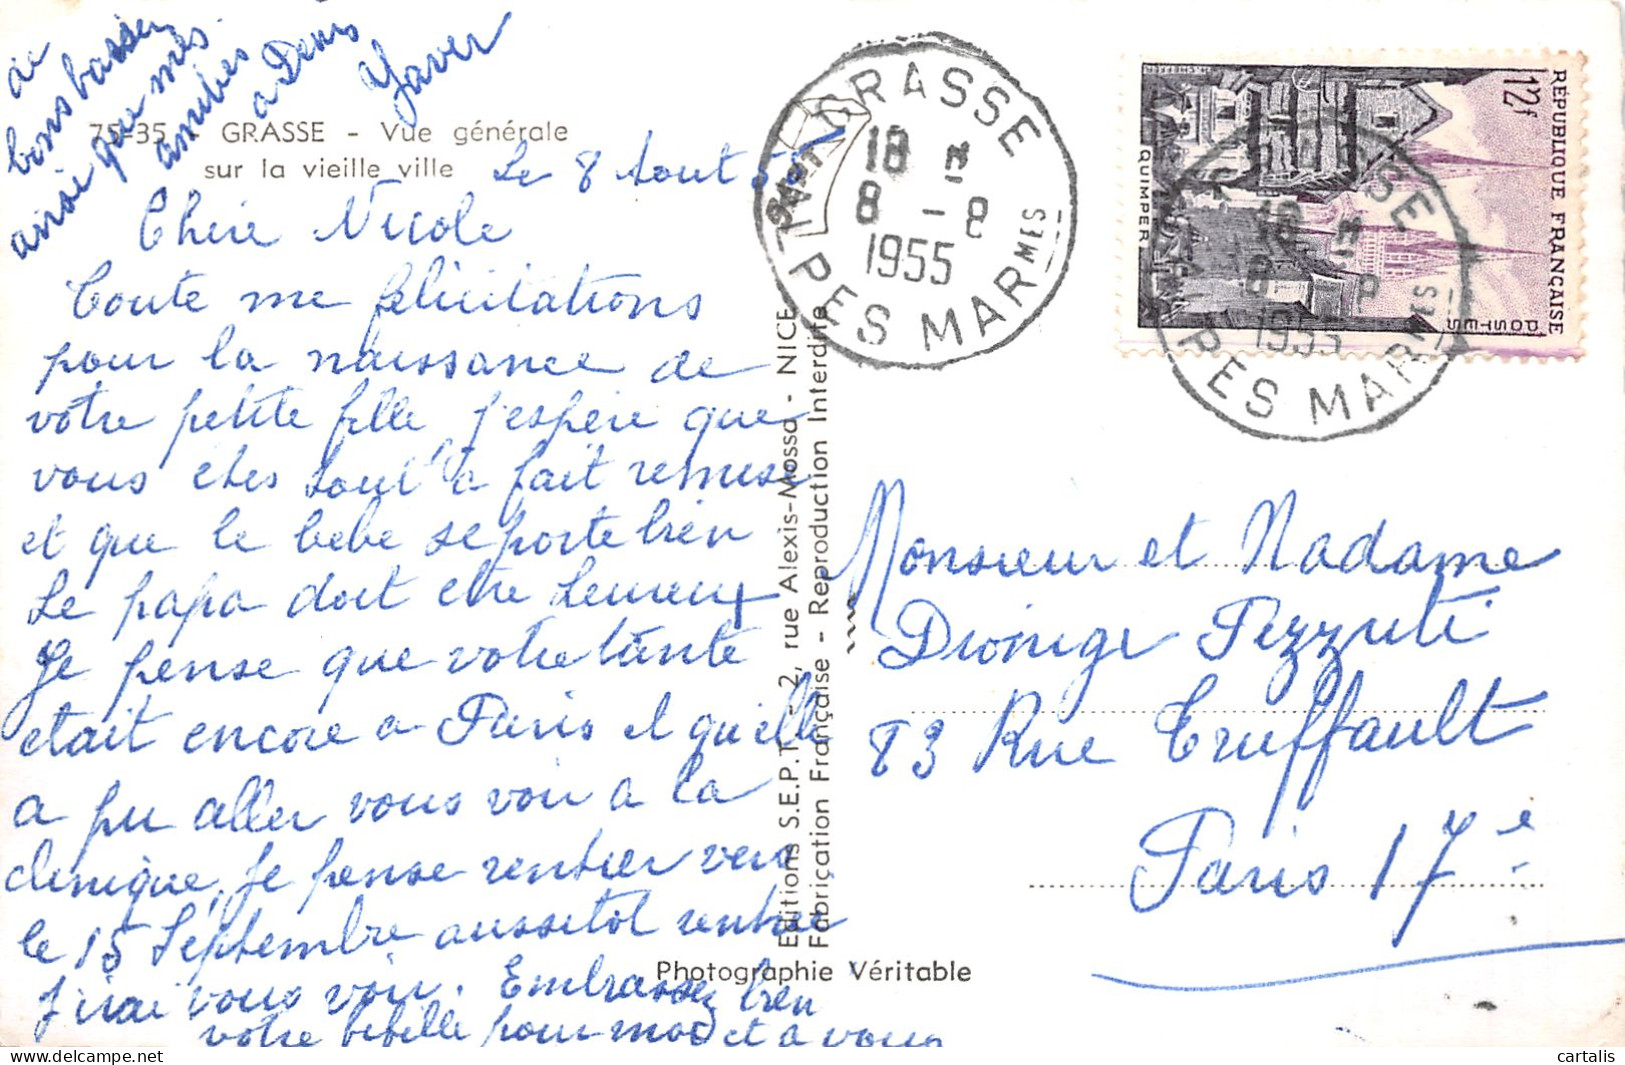 75-35 - GRASSE - Vue générale
sur la vieille ville
Le 8 Aout 55
Chere Nicole
Toute me felicitations
pour la naissance de
votre petite fille j'espere que
vous etes tout a fait remise
et que le bebe se porte bien
Le papa doit etre heureux
Je pense que votre tante
etait encore a Paris et qu'elle
a pu aller vous voir a la
clinique, je pense rentrer vers
le 15 Septembre aussitot rentree
j'irai vous voir. Embrassez bien
votre bebelle pour moi et a vous
de
bons basseri
ainsi que mes
amities
a Denis
Yaver
Editions S.E.P.T. - 2, rue Alexis-Mossa - NICE
Fabrication Française - Reproduction Interdite
Photographie Véritable
GRASSE
18 H
8 - 8
1955
ALPES MARMES
12f
RÉPUBLIQUE FRANÇAISE
POSTES
QUIMPER
GRASSE
18 H
8 - 8
1955
ALPES MARMES
Monsieur et Madame
Dionige Pezzuti
83 Rue Truffault
Paris 17e
cartalis